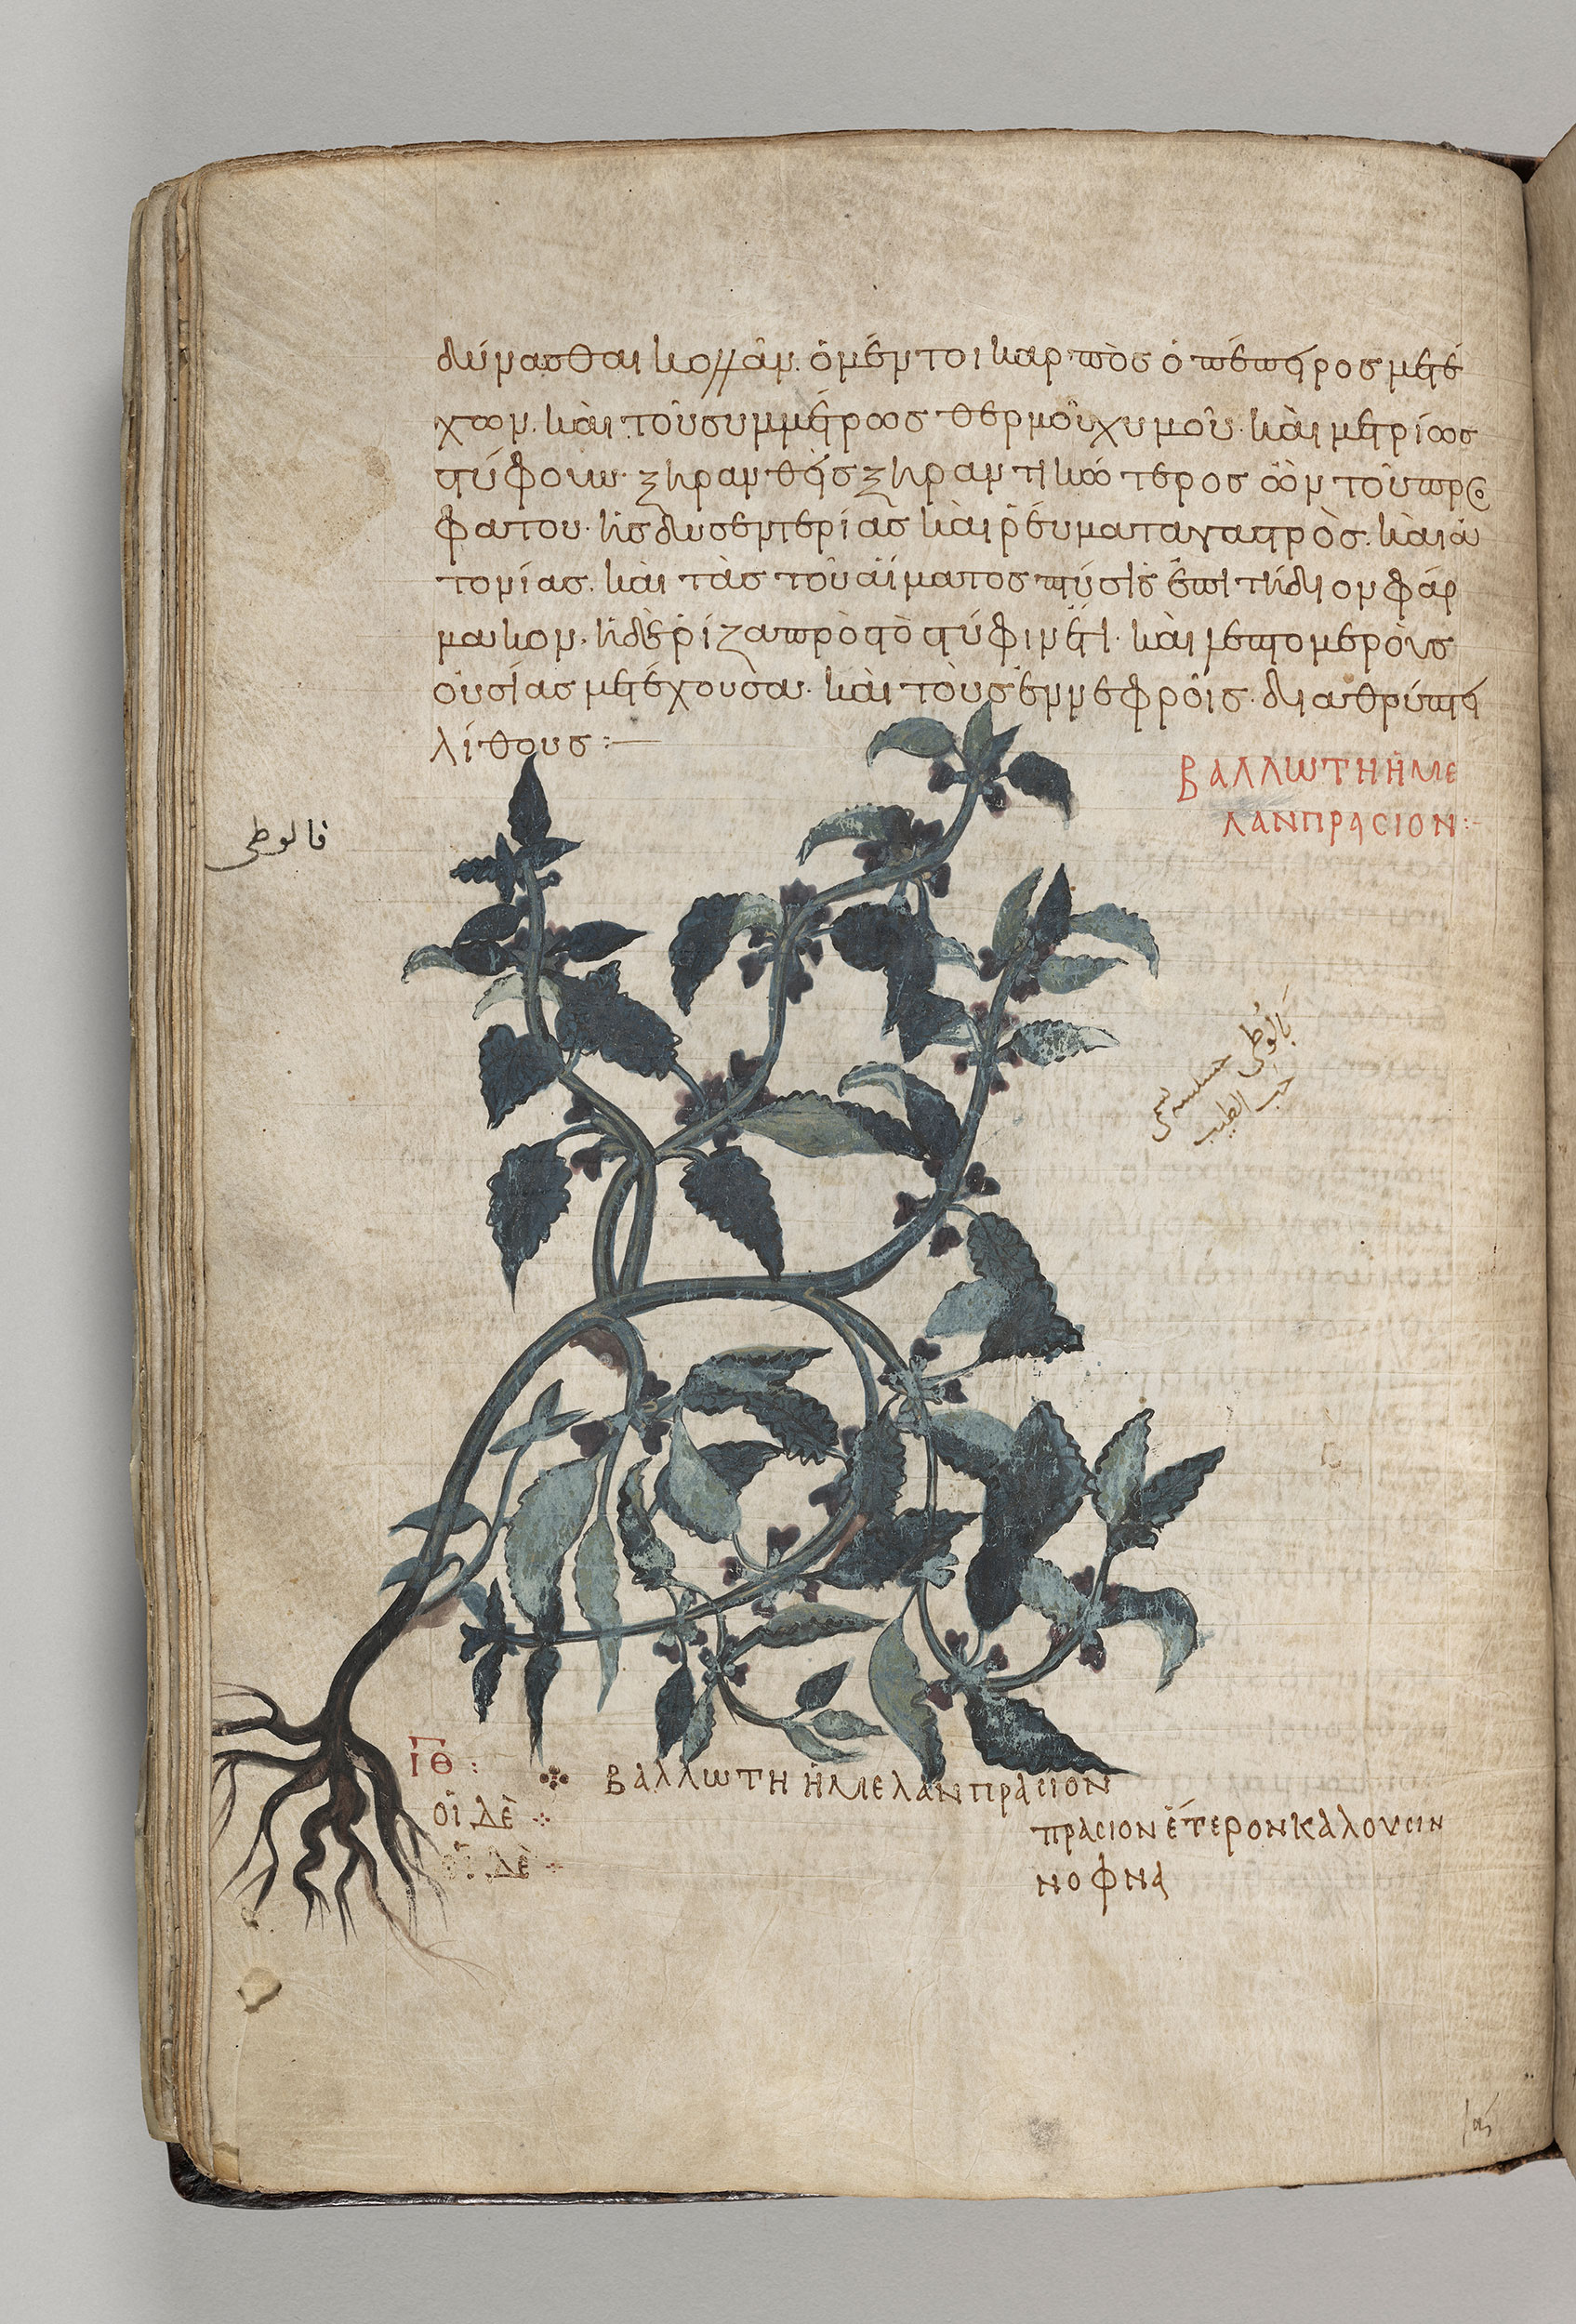 δύνασθαι κολλᾶν. ὁ μέντοι καρπὸς ὁ πέπειρος μετέ
χων. και τοῦ συμμέτρως θερμοῦ χυμοῦ. και μετρίως
στύφων. ξηρανθεὶς ξηραντικώτερος ὢν τοῦ προ
φάτου. εἰς δυσεντερίας και ῥεύματα γαστρὸς. και ἀ
τονίας. και τὰς τοῦ αἵματος πτύσεις ἐπιτήδιον φάρ
μακον. ἡ δὲ ῥίζα πρὸς τὸ στύφιν ἔτι. και λεπτομεροῦς
οὐσίας μετέχουσα. και τοὺς ἐν νεφροῖς. διαθρύπτει
λίθους :—
ΒΑΛΛΩΤΗ Ἡ ΜΕ
ΛΑΝΠΡΑСΙΟΝ :-
فالوطى
بالوطى
حب الطيب
ΓΘ :
ΒΑΛΛΩΤΗ Ἡ ΜΕΛΑΝΠΡΑСΙΟΝ
ΟἹ ΔΕ
ΠΡΑСΙΟΝ ἝΤΕΡΟΝ ΚΑΛΟΥСΙΝ
ΟἹ ΔΕ
ΝΟΦΝΑ